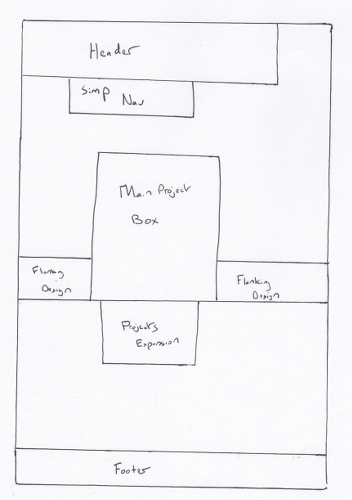 Header
Simp
Nav
Main Project
Box
Flanking
Design
Flanking
Design
Projects
Expansion
Footer